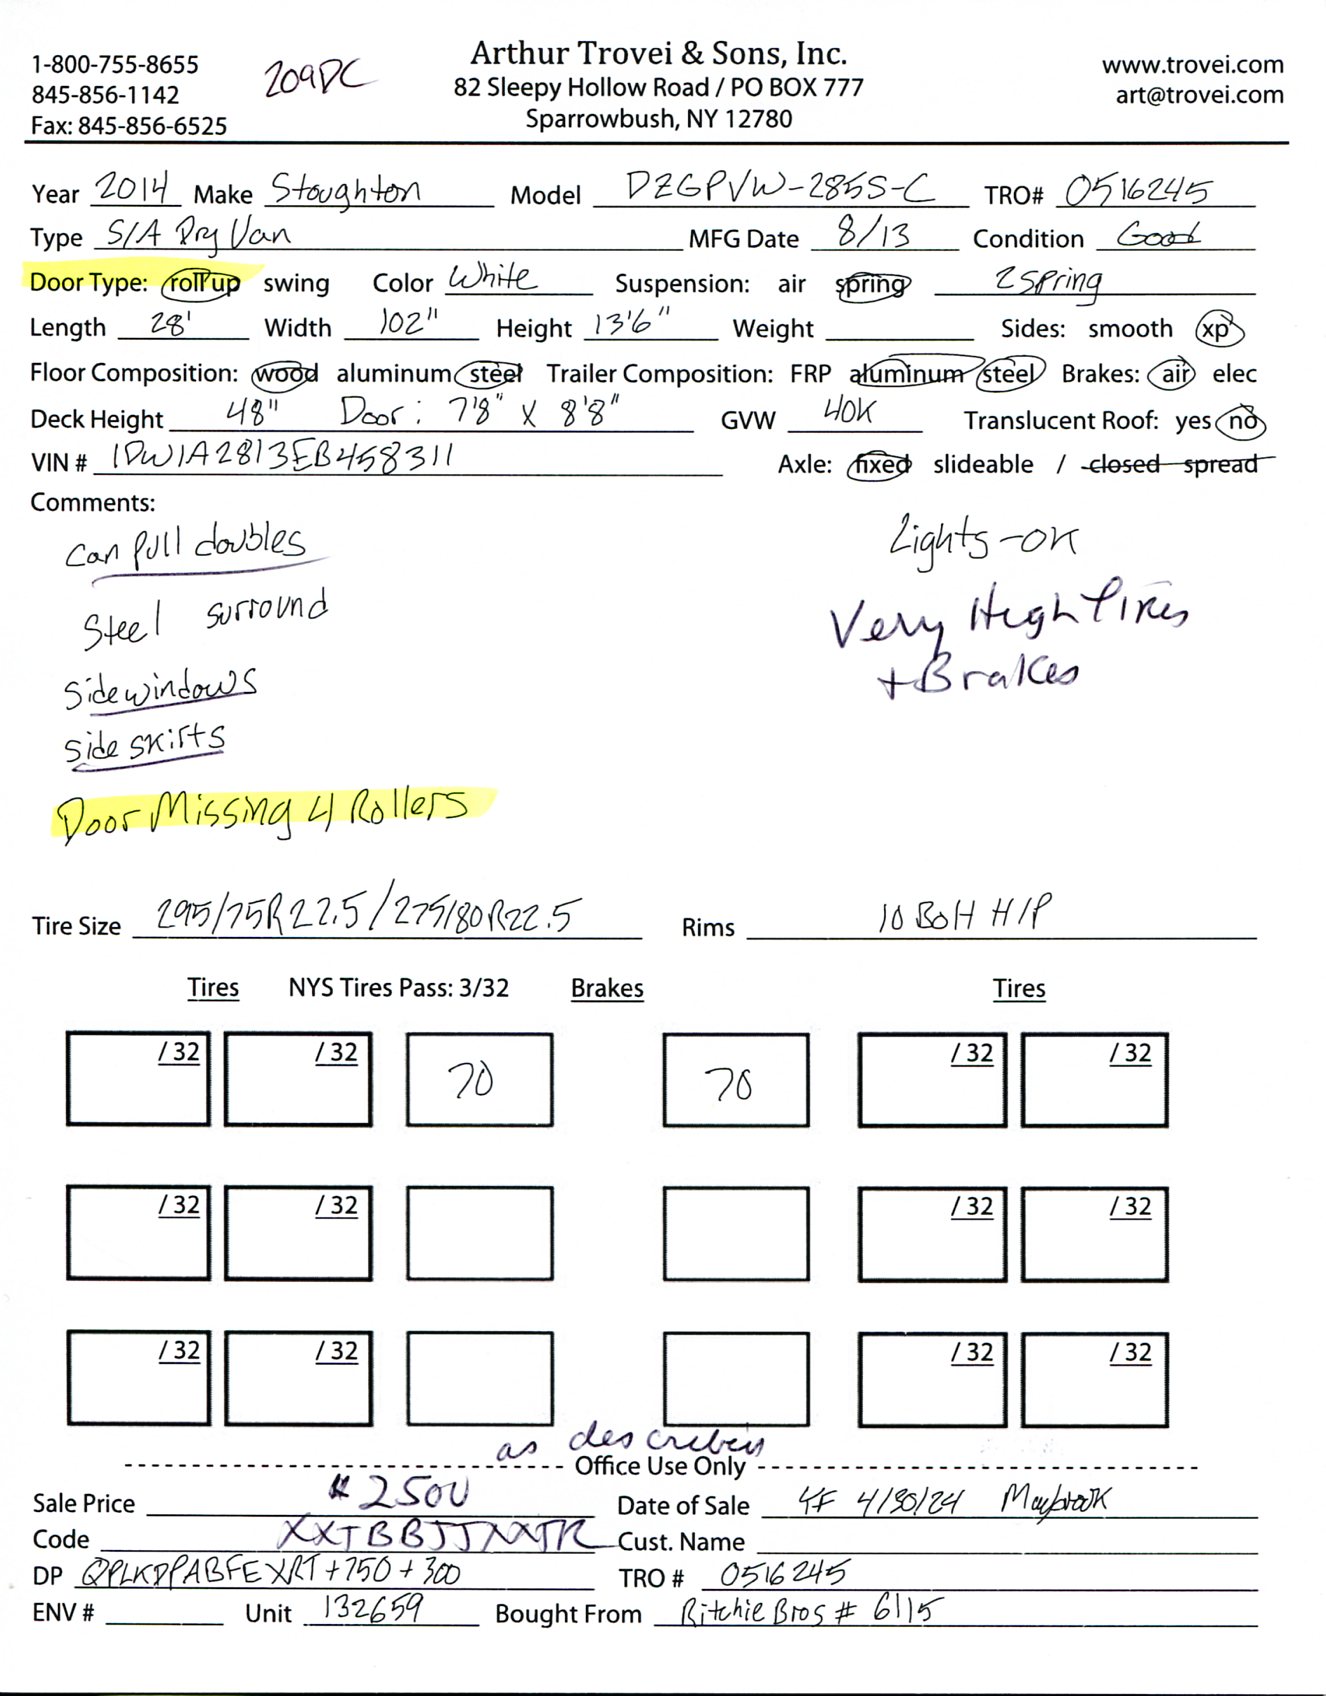 1-800-755-8655
845-856-1142
Fax: 845-856-6525
209DC
Arthur Trovei & Sons, Inc.
82 Sleepy Hollow Road / PO BOX 777
Sparrowbush, NY 12780
www.trovei.com
art@trovei.com
Year 2014 Make Stoughton Model DZGPVW-285S-C TRO# 0516245
Type S/A Dry Van MFG Date 8/13 Condition Good
Door Type: roll up swing Color White Suspension: air spring 2 spring
Length 28' Width 102" Height 13'6" Weight Sides: smooth xp
Floor Composition: wood aluminum steel Trailer Composition: FRP aluminum steel Brakes: air elec
Deck Height 48" Door: 7'8" X 8'8" GVW 40K Translucent Roof: yes no
VIN # 1DW1A2813EB458311 Axle: fixed slideable / closed spread
Comments:
can pull doubles
Steel surround
Side windows
side skirts
Door Missing 4 Rollers
Lights-OK
Very High Tires
+ Brakes
Tire Size 295/75R22.5/275/80R22.5 Rims 10 BoH H/P
Tires NYS Tires Pass: 3/32 Brakes Tires
/ 32 / 32 70 70 / 32 / 32
/ 32 / 32 / 32 / 32
/ 32 / 32 / 32 / 32
as
Office Use Only
Sale Price $2500 Date of Sale 4/30/24 Maybrook
Code Cust. Name
DP +750+300 TRO # 0516245
ENV # Unit 132659 Bought From Ritchie Bros # 6115